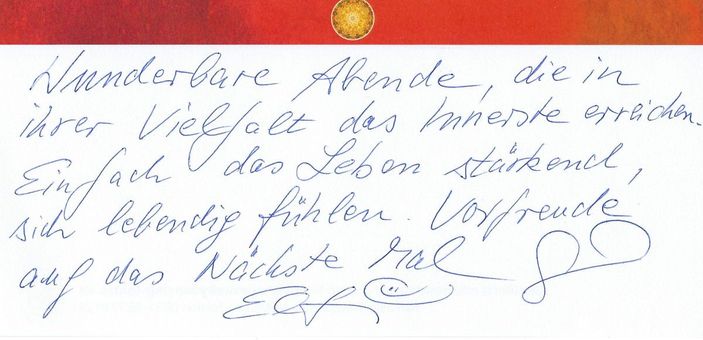 Wunderbare Abende, die in
ihrer Vielfalt das Innerste erreichen.
Einfach das Leben stärkend,
sich lebendig fühlen. Vorfreude
auf das Nächste Mal